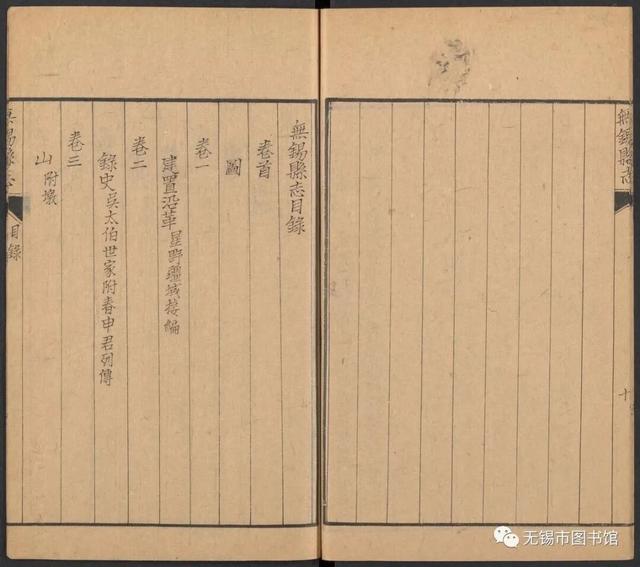 無錫縣志
十
無錫縣志目錄
卷首
圖
卷一
建置沿革 星野疆域接編
卷二
錄史吳太伯世家附春申君列傳
卷三
山附墩
無錫縣志
目錄
无锡市图书馆